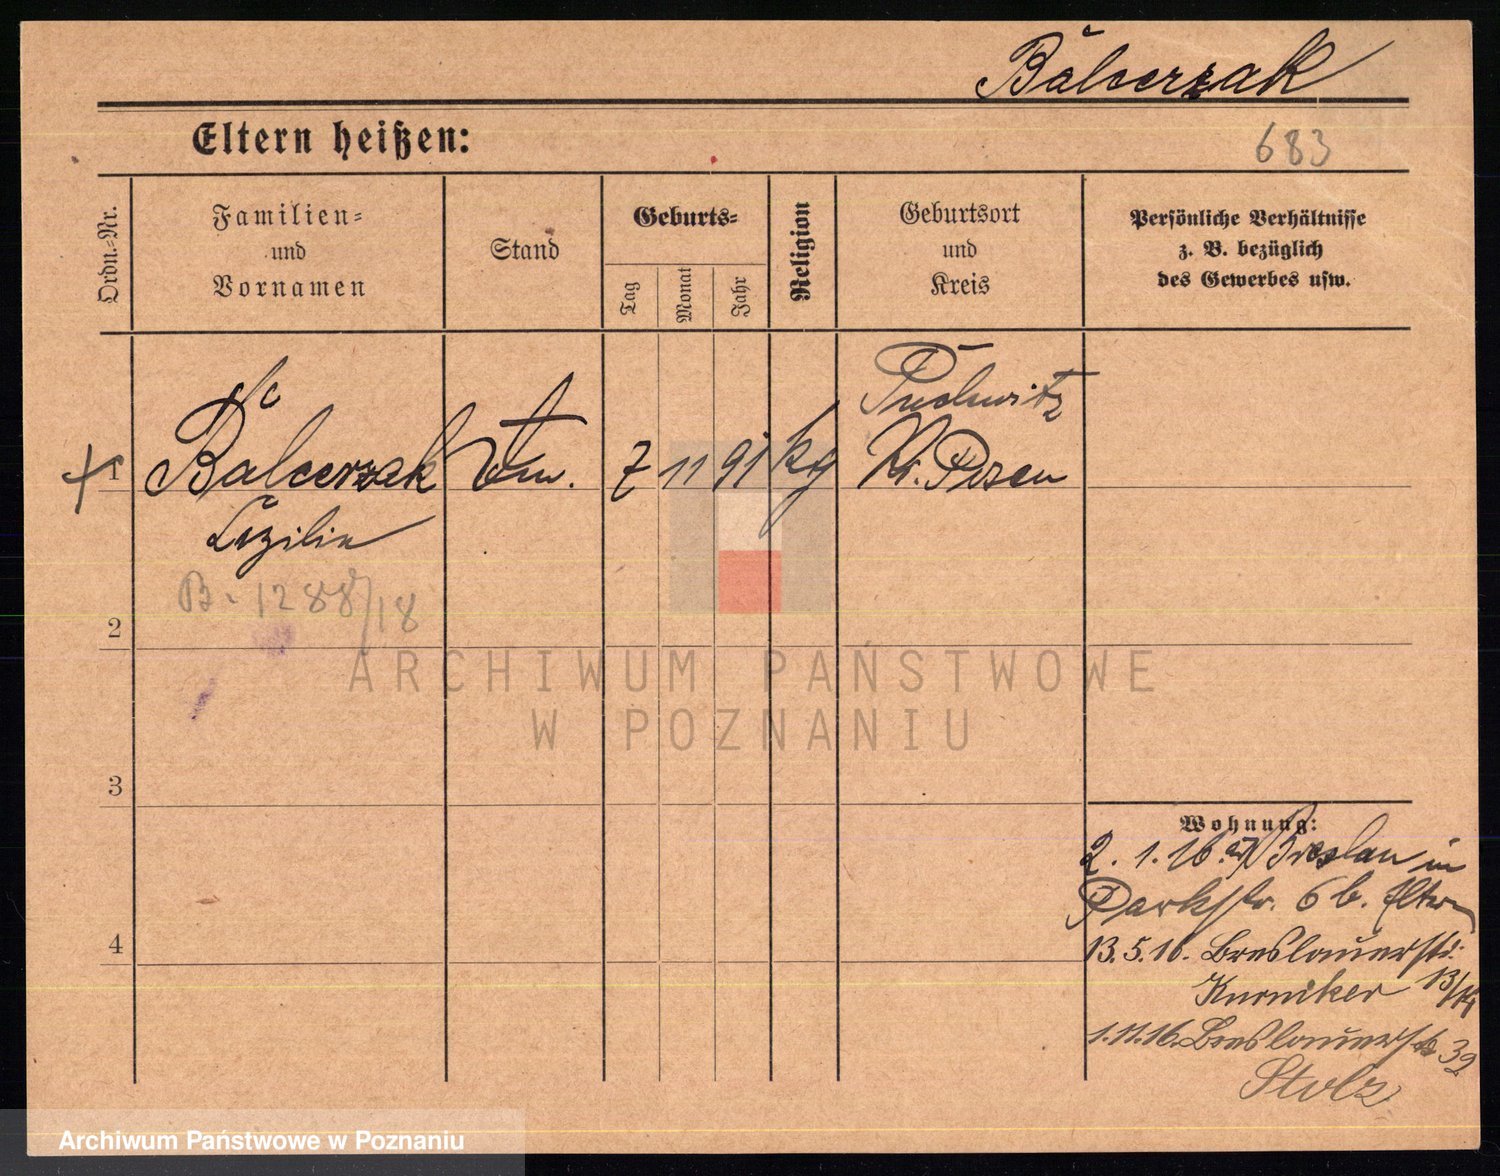 Balcerzak
Eltern heißen:
683
Ordn.-Nr.
Familien-
und
Vornamen
Stand
Geburts-
Tag
Monat
Jahr
Religion
Geburtsort
und
Kreis
Persönliche Verhältnisse
z. B. bezüglich
des Gewerbes usw.
1
Balcerzak
7 11 91 kg
Kr. Posen
Cezilia
B. 1288/18
2
3
4
Wohnung:
2. 1. 16. Breslau in
Parkstr. 6 b. Eltern
13. 5. 16. Breslauerstr.
Kurniker 13/14
1. 11. 16. Breslauerstr 39
Stolz
ARCHIWUM PAŃSTWOWE
W POZNANIU
Archiwum Państwowe w Poznaniu